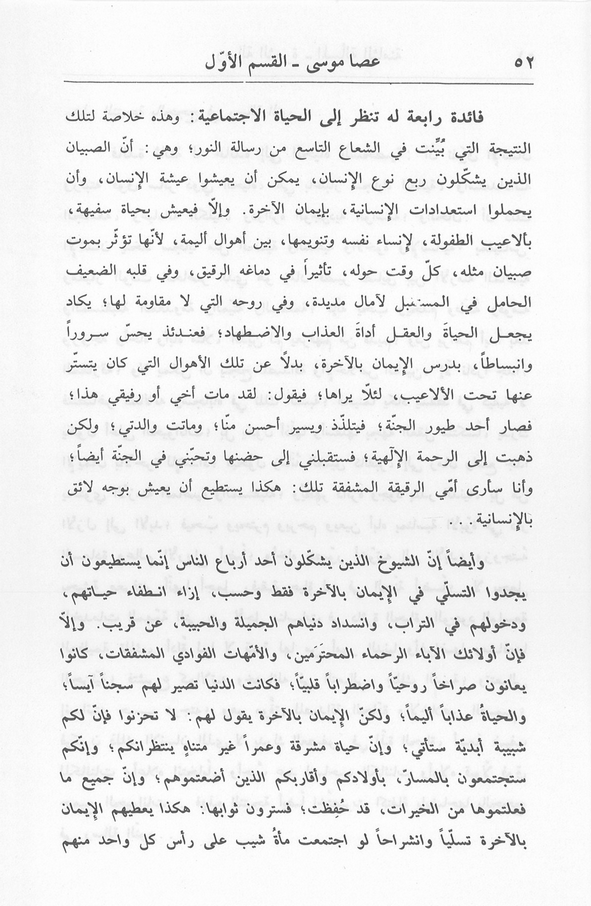 ٥٢ عصا موسى ـ القسم الأوّل
فائدة رابعة له تنظر إلى الحياة الاجتماعية: وهذه خلاصة لتلك
النتيجة التي بُيِّنت في الشعاع التاسع من رسالة النور؛ وهي: أنّ الصبيان
الذين يشكّلون ربع نوع الإنسان، يمكن أن يعيشوا عيشة الإنسان، وأن
يحملوا استعدادات الإنسانية، بإيمان الآخرة. وإلّا فيعيش بحياة سفيهة،
بألاعيب الطفولة، لإنساء نفسه وتنويمها، بين أهوال أليمة، لأنّها تؤثّر بموت
صبيان مثله، كلّ وقت حوله، تأثيراً في دماغه الرقيق، وفي قلبه الضعيف
الحامل في المستقبل لآمال مديدة، وفي روحه التي لا مقاومة لها؛ يكاد
يجعل الحياةَ والعقل أداةَ العذاب والاضطهاد؛ فعندئذ يحسّ سروراً
وانبساطاً، بدرس الإيمان بالآخرة، بدلًا عن تلك الأهوال التي كان يتستّر
عنها تحت الألاعيب، لئلّا يراها؛ فيقول: لقد مات أخي أو رفيقي هذا؛
فصار أحد طيور الجنّة؛ فيتلذّذ ويسير أحسن منّا؛ وماتت والدتي؛ ولكن
ذهبت إلى الرحمة الإلٰهية؛ فستقبلني إلى حضنها وتحبّني في الجنّة أيضاً؛
وأنا سأرى أمّي الرقيقة المشفقة تلك: هكذا يستطيع أن يعيش بوجه لائق
بالإنسانية...
وأيضاً إنّ الشيوخ الذين يشكّلون أحد أرباع الناس إنّما يستطيعون أن
يجدوا التسلّي في الإيمان بالآخرة فقط وحسب، إزاء انطفاء حياتهم،
ودخولهم في التراب، وانسداد دنياهم الجميلة والحبيبة، عن قريب. وإلّا
فإنّ أولائك الآباء الرحماء المحترَمين، والأمّهات الفوادي المشفقات، كانوا
يعانون صراخاً روحيّاً واضطراباً قلبيّاً؛ فكانت الدنيا تصير لهم سجناً آيساً؛
والحياةُ عذاباً أليماً؛ ولكنّ الإيمان بالآخرة يقول لهم: لا تحزنوا فإنّ لكم
شبيبة أبديّة ستأتي؛ وإنّ حياة مشرقة وعمراً غير متناهٍ ينتظرانكم؛ وإنّكم
ستجتمعون بالمسارّ، بأولادكم وأقاربكم الذين أضعتموهم؛ وإنّ جميع ما
فعلتموها من الخيرات، قد حُفِظت؛ فسترون ثوابها: هكذا يعطيهم الإيمان
بالآخرة تسلّياً وانشراحاً لو اجتمعت مأةُ شيب على رأس كل واحد منهم